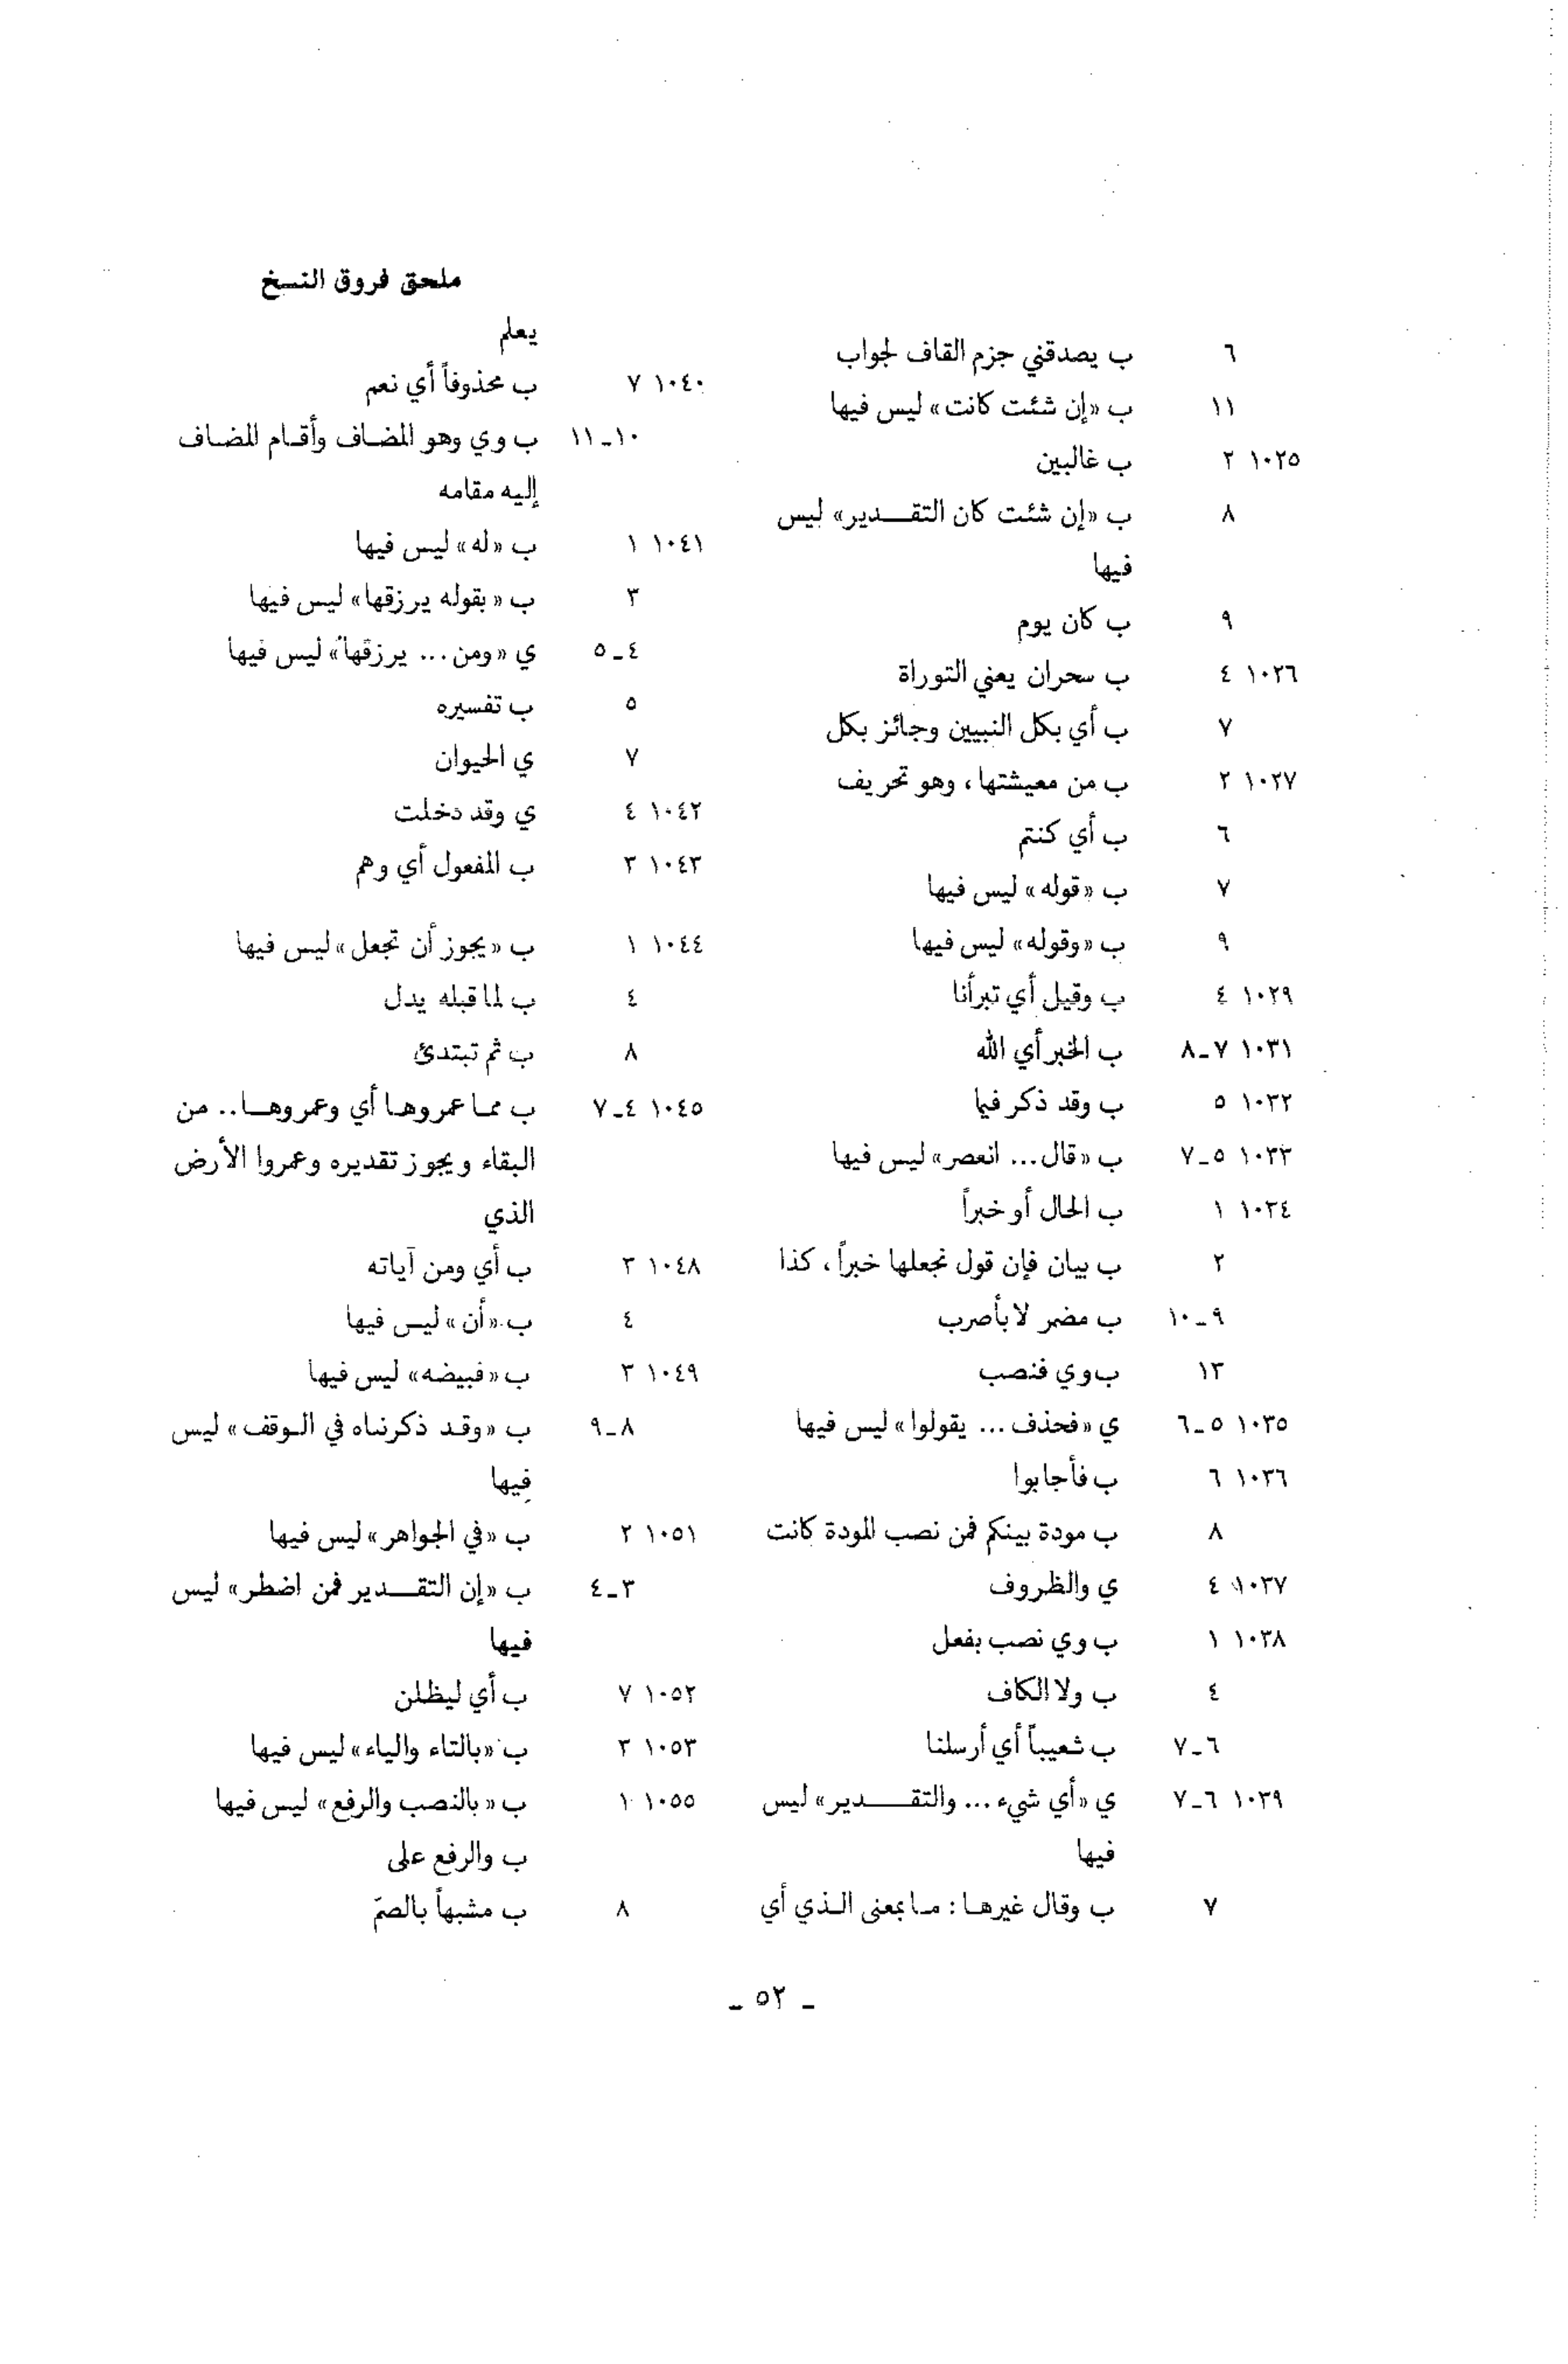 ملحق فروق النسخ
٦ ب يصدقني جزم القاف لجواب
١١ ب «إن شئت كانت» ليس فيها
١٠٢٥ ٢ ب غالبين
٨ ب «إن شئت كان التقـــدير» ليس
فيها
٩ ب كان يوم
١٠٢٦ ٤ ب سحران يعني التوراة
٧ ب أي بكل النبيين وجائز بكل
١٠٢٧ ٢ ب من معيشتها ، وهو تحريف
٦ ب أي كنتم
٧ ب «قوله» ليس فيها
٩ ب «وقوله» ليس فيها
١٠٢٩ ٤ ب وقيل أي تبرأنا
١٠٣١ ٧ـ٨ ب الخبر أي الله
١٠٣٢ ٥ ب وقد ذكر فيما
١٠٣٣ ٥ـ٧ ب «قال... انعصر» ليس فيها
١٠٣٤ ١ ب الحال أو خبراً
٢ ب بيان فإن قول نجعلها خبراً ، كذا
٩ـ١٠ ب مضمر لا بأصرب
١٣ ب وي فنصب
١٠٣٥ ٥ـ٦ ي «فحذف ... يقولوا» ليس فيها
١٠٣٦ ٦ ب فأجابوا
٨ ب مودة بينكم فمن نصب المودة كانت
١٠٣٧ ٤ ي والظروف
١٠٣٨ ١ ب وي نصب بفعل
٤ ب ولا الكاف
٦ـ٧ ب شعيباً أي أرسلنا
١٠٣٩ ٦ـ٧ ي «أي شيء ... والتقـــدير» ليس
فيها
٧ ب وقال غيرهـا : مـا بمعنى الـذي أي
يعلم
١٠٤٠ ٧ ب محذوفاً أي نعم
١٠ـ١١ ب وي وهو المضـاف وأقـام المضـاف
إليه مقامه
١٠٤١ ١ ب «له» ليس فيها
٣ ب «بقوله يرزقها» ليس فيها
٤ـ٥ ي «ومن ... يرزقها» ليس فيها
٥ ب تفسيره
٧ ي الحيوان
١٠٤٢ ٤ ي وقد دخلت
١٠٤٣ ٣ ب المفعول أي وهم
١٠٤٤ ١ ب «يجوز أن تجعل» ليس فيها
٤ ب لما قبله يدل
٨ ب ثم تبتدئ
١٠٤٥ ٤ـ٧ ب ممـا عمروهـا أي وعمروهـا.. من
البقاء ويجوز تقديره وعمروا الأرض
الذي
١٠٤٨ ٣ ب أي ومن آياته
٤ ب «أن» ليس فيها
١٠٤٩ ٣ ب «فبيضه» ليس فيها
٨ـ٩ ب «وقـد ذكرنـاه في الـوقف» ليس
فيها
١٠٥١ ٢ ب «في الجواهر» ليس فيها
٣ـ٤ ب «إن التقـــدير فمن اضطر» ليس
فيها
١٠٥٢ ٧ ب أي ليظلن
١٠٥٣ ٣ ب «بالتاء والياء» ليس فيها
١٠٥٥ ١ ب «بالنصب والرفع» ليس فيها
ب والرفع على
٨ ب مشبهاً بالصمّ
ـ ٥٢ ـ